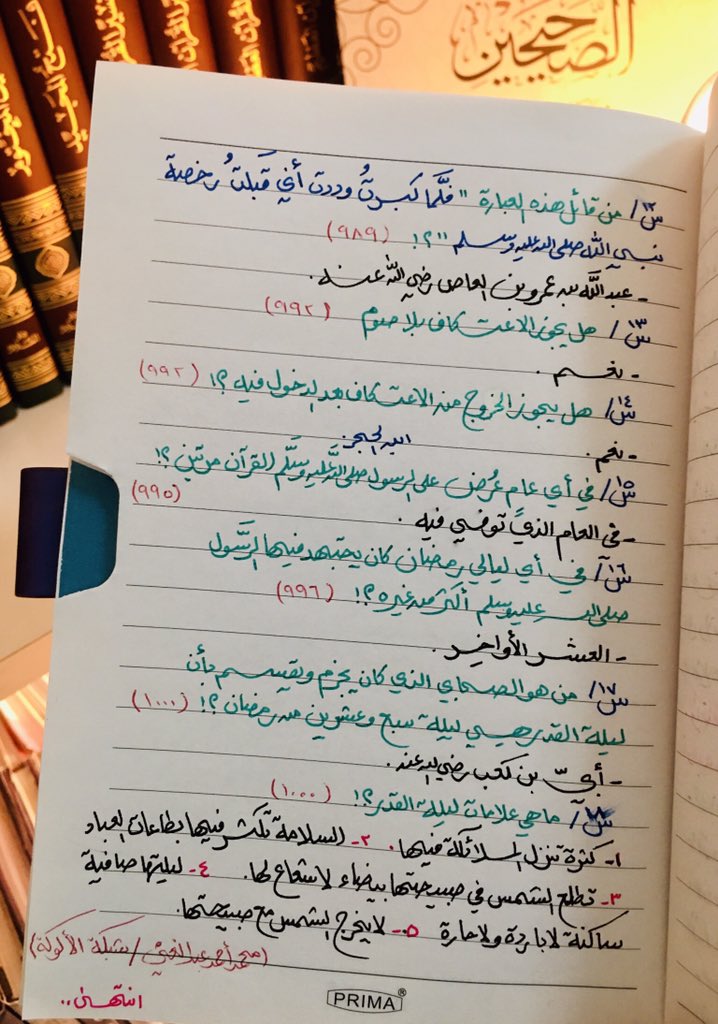 الصحيحين
س١٢/ من قائل هذه العبارة "فلَّما كبرتُ وددت أني قَبلتُ رخصة
نبي الله صلى الله عليه وسلم"؟! (٩٨٩)
- عبد الله بن عمرو بن العاص رضي الله عنه.
س١٣/ هل يجوز الاعتكاف بلا صوم (٩٩٢)
- نعم.
س١٤/ هل يجوز الخروج من الاعتكاف بعد الدخول فيه؟! (٩٩٢)
- نعم.
س١٥/ في أي عامٍ عُرض على الرسول صلى الله عليه وسلَّم القرآن مرتين؟!
(٩٩٥)
- في العام الذي توفي فيه.
س١٦/ في أي ليالي رمضان كان يجتهد فيها الرَّسول
صلى الله عليه وسلم أكثر من غيره؟! (٩٩٦)
- العشر الأواخر.
س١٧/ من هو الصحابي الذي كان يجزم ويقسم بأن
ليلة القدر هي ليلة سبع وعشرين من رمضان؟! (١٠٠٠)
- أبيّ بن كعب رضي الله عنه.
س١٨/ ما هي علامات ليلة القدر؟! (١٠٠٠)
١- كثرة تنزل الملائكة فيها. ٢- السلامة تكثر فيها بطاعات العباد
٣- تطلع الشمس في صبيحتها بيضاء لا شعاع لها. ٤- ليلتها صافية
ساكنة لا باردة ولا حارة ٥- لا يخرج الشمس مع صبيحتها.
(محمد أحمد عبد الغني / شبكة الألوكة)
انتهى..
PRIMA®